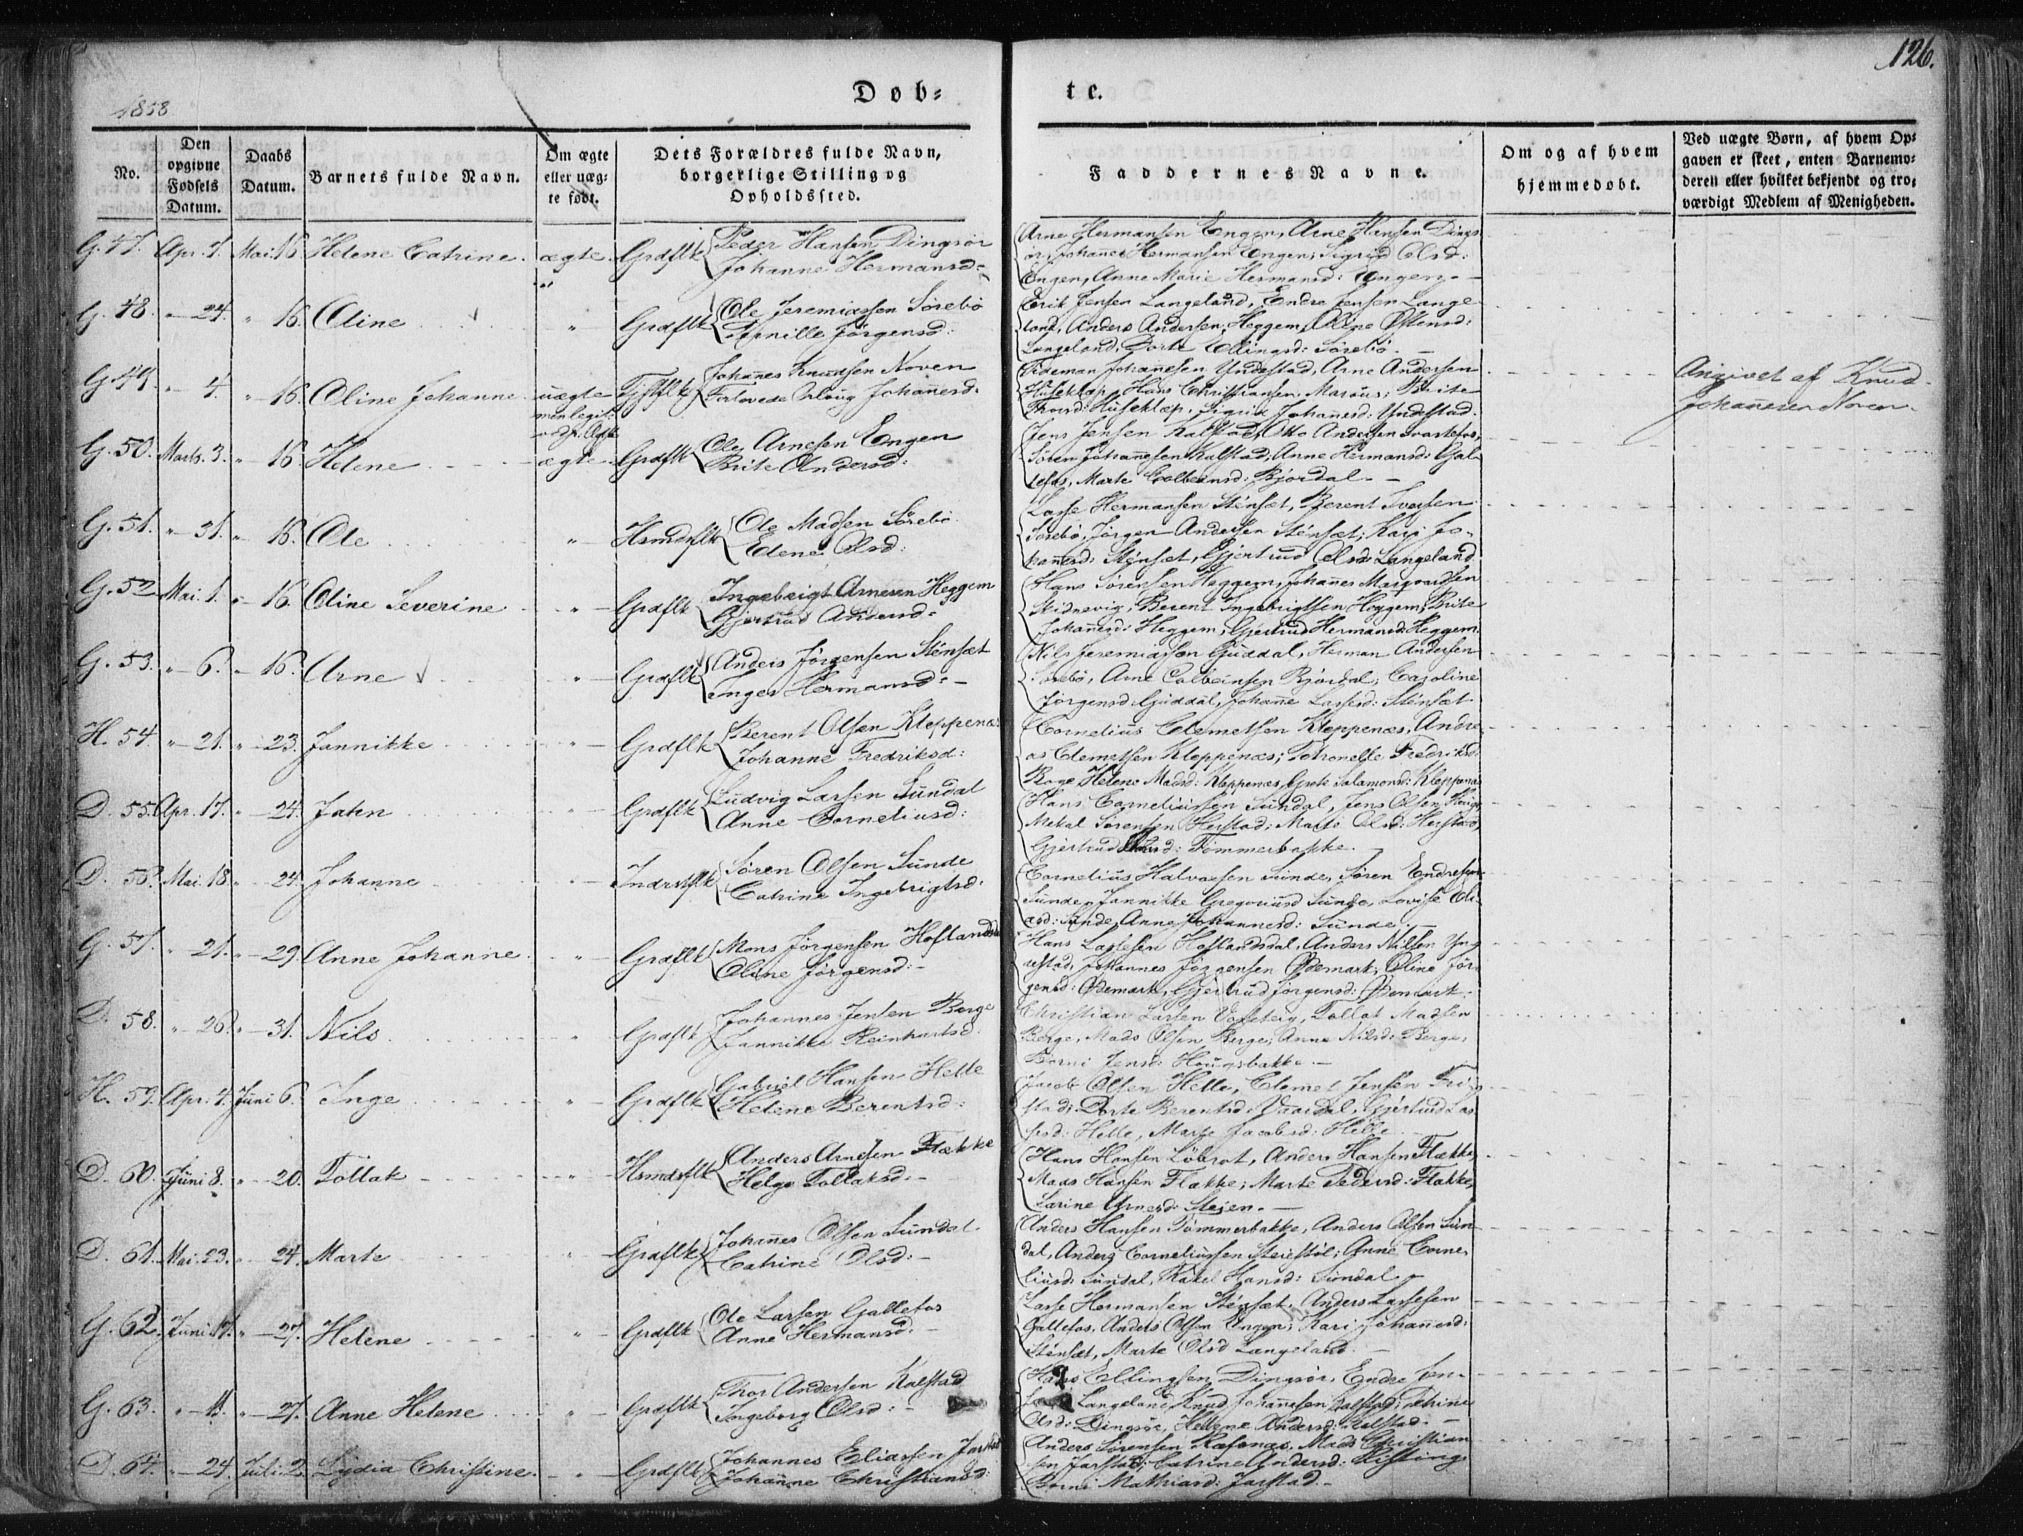 126.
1858
Døb-
te.
No.
Den opgivne Fødsels Datum.
Daabs Datum.
Barnets fulde Navn.
Om ægte eller uægte født.
Dets Forældres fulde Navn, borgerlige Stilling og Opholdssted.
Faddernes Navne.
Om og af hvem hjemmedøbt.
Ved uægte Børn, af hvem Opgaven er skeet, enten Barnemoderen eller hvilket bekjendt og troværdigt Medlem af Menigheden.
G. 47. Apr. 7. Mai. 16 Helene Catrine. ægte. Grdflk Peder Hansen Dingsör
Johanne Hermansd:
Arne Hermansen Engen, Arne Hansen Dings-
ör, Johannes Hermansen Engen; Sigrid Olsd:
Engen, Anne Marie Hermansd: Engen.
G. 48. " 24. " 16. Oline " Grdflk Ole Jeremiassen Sörebö
Pernille Jörgensd:
Erik Jensen Langeland, Endre Jensen Lange-
land, Anders Andersen Heggem,
Langeland, Dorte Ellingsd: Sörebö.
G. 49. " 4. " 16. Oline Johanne. uægte Johannes Knudsen Noven
Forlovede Johannesd.
Tideman Johannesen Yndestad, Arne Andersen
Huseklep, Hans Christiansen
Huseklep, Sigrid Johannesd: Yndestad.
Angivet af Knud
Johannesen Noven.
G. 50. Marts. 3. " 16 Helene ægte Grdflk Ole Arnesen Engen
Brite Andersd:
Jens Jensen Kalstad, Otto Andersen Svartefos,
Sören Johannesen Kalstad; Anne Hermansd: Gal-
lefos, Marte Colbeinsd: Bjordal.
G. 51. " 31. " 16. Ole " Hsmdsflk Ole Madsen Sörebö.
Edene Olsd:
Lasse Hermansen Stensæt, Berent Iversen
Sörebö, Jörgen Andersen Stensæt; Kari Jo-
hannesd: Stensæt, Gjertrud Olsd: Langeland.
G. 52 Mai. 1. " 16. Oline Severine " Grdflk Ingebrigt Arnesen Heggem
Gjertrud Andersd:
Hans Sörensen Heggem, Johannes Margvardsen
Skidnevig, Berent Ingebrigtsen Heggem, Brite
Johannesd: Heggem, Gjertrud Hermansd: Heggem.
G. 53. " 6. " 16. Arne " Grdflk Anders Jörgensen Stensæt
Inger Hermansd:
Nils Jeremiassen Guddal, Herman Andersen
Sörebö, Arne Colbeinsen Bjordal; Caroline
Jörgensd: Guddal, Johanne Lassesd: Stensæt.
H. 54. " 21. " 23. Jannikke " Grdflk Berent Olsen Kleppenæs
Johanne Fredriksd:
Cornelius Clemetsen Kleppenæs, Andre-
as Clemetsen Kleppenæs; Petronelle Frederiksd:
Helene Madsd: Kleppenæs, Salamonsd: Kleppenæs
D. 55. Apr. 17. " 24. Jahn " Grdflk Ludvig Larsen Sundal
Anne Corneliusd:
Hans Corneliussen Sundal, Jens Olsen
Mekal Sörensen Herstad; Marte Olsd: Herstad,
Gjertrud Tömmerbakke.
D. 56. Mai. 18. " 24. Johanne Indrstflk Sören Olsen Sunde
Catrine Ingebrigtsd.
Cornelius Halvorsen Sunde, Sören Endresen
Sunde, Jannikke Gregoriusd: Sunde, Lovise Oli-
asd: Sunde, Anne Johannesd: Sunde.
G. 57. " 21. " 29. Anne Johanne " Grdflk Mons Jörgensen Hoflandsdal
Oline Jörgensd:
Hans Lassesen Hoflandsdal, Anders Nilsen Yn-
destad, Johannes Jörgensen Ödemark; Oline Jör-
gensd: Ödemark, Gjertrud Jörgensd: Ödemark.
D. 58. " 26. " 31. Nils " Grdflk Johannes Jensen Berge
Jannikke Reinhartsd:
Christian Larsen Tollak Madsen
Berge, Mads Olsen Berge; Anna Nilsd: Berge,
Borni Jensd: Hougsbakke.
H. 59. Apr. 4. Juni 6. Inge " Grdflk Gabriel Hansen Helle
Helene Berentsd:
Jacob Olsen Helle, Clemet Jensen
Dorte Berentsd: Vaardal, Gjertrud
Helle, Marte Jacobsd: Helle.
D. 60. Juni 8. " 20. Tollak " Hsmdsflk Anders Arnesen Flække
Helge Tollaksd:
Hans Hansen Löbrot, Anders Hansen Flække,
Mads Hansen Flække; Marte Pedersd: Flække,
Larine Arnesd: Steien.
D. 61. Mai. 23. " 24. Marte " Grdflk Johannes Olsen Sundal.
Catrine Olsd:
Anders Hansen Tömmerbakke, Anders Olsen Sun-
dal, Anders Corneliussen Steiestöl; Anne Corne-
liusd: Sundal, Rakel Hansd: Sundal.
G. 62. Juni 17. " 27. Helene " Grdflk Ole Larsen Gallefos
Anne Hermansd:
Lasse Hermansen Stensæt, Anders Lassesen
Gallefos, Anders Olsen Engen; Kari Johannesd:
Stensæt, Marte Olsd Langeland.
G. 63. " 11. " 27. Anne Helene " Grdflk Thor Andersen Kalstad
Ingeborg Olsd:
Hans Ellingsen Dingsör, Endre Jen-
Langeland, Knud Johannesen Kalstad; Thrine
Olsd: Dingsör, Helene Andersd: Kalstad.
D. 64. " 24. Juli. 2. Lydia Christine. " Grdflk Johannes Eliassen Jarstad
Johanne Christiansd:
Anders Sörensen Ræfsnæs, Mads Christian-
sen Jarstad; Catrine Andersd:
Borni Mathiasd: Jarstad.